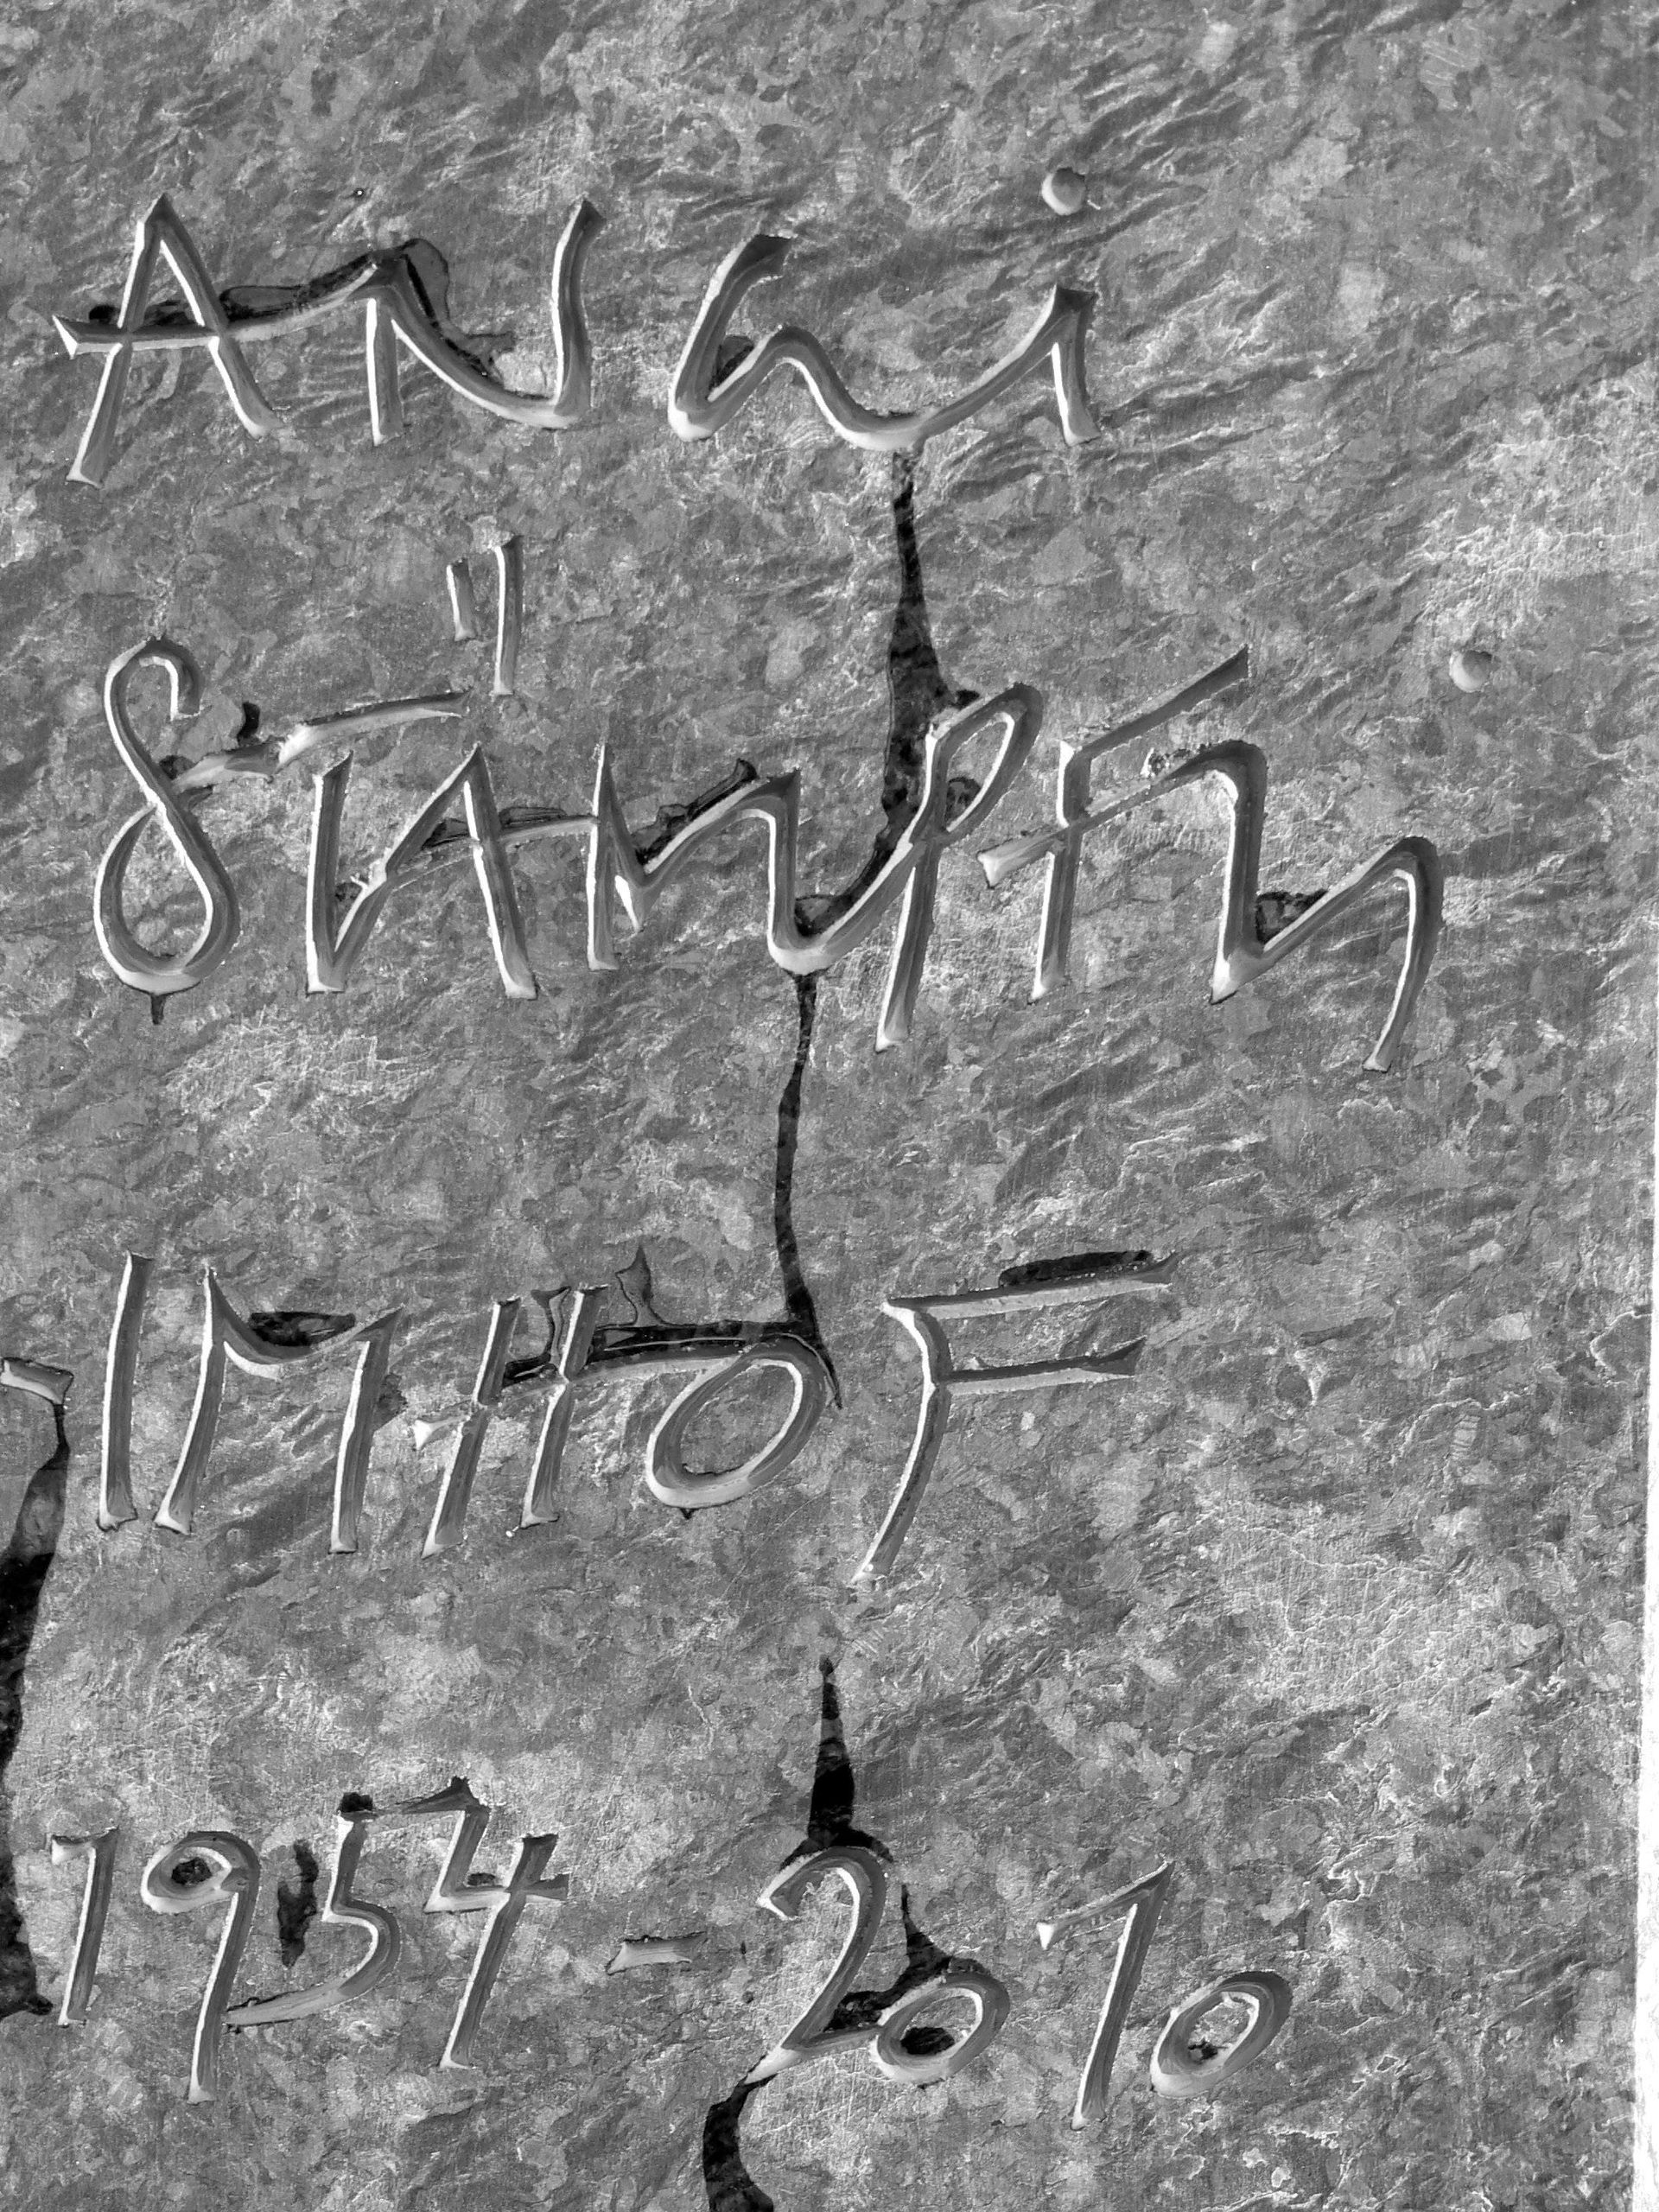 ANNi
STÄMPFLi
IMHOF
1954 - 2010